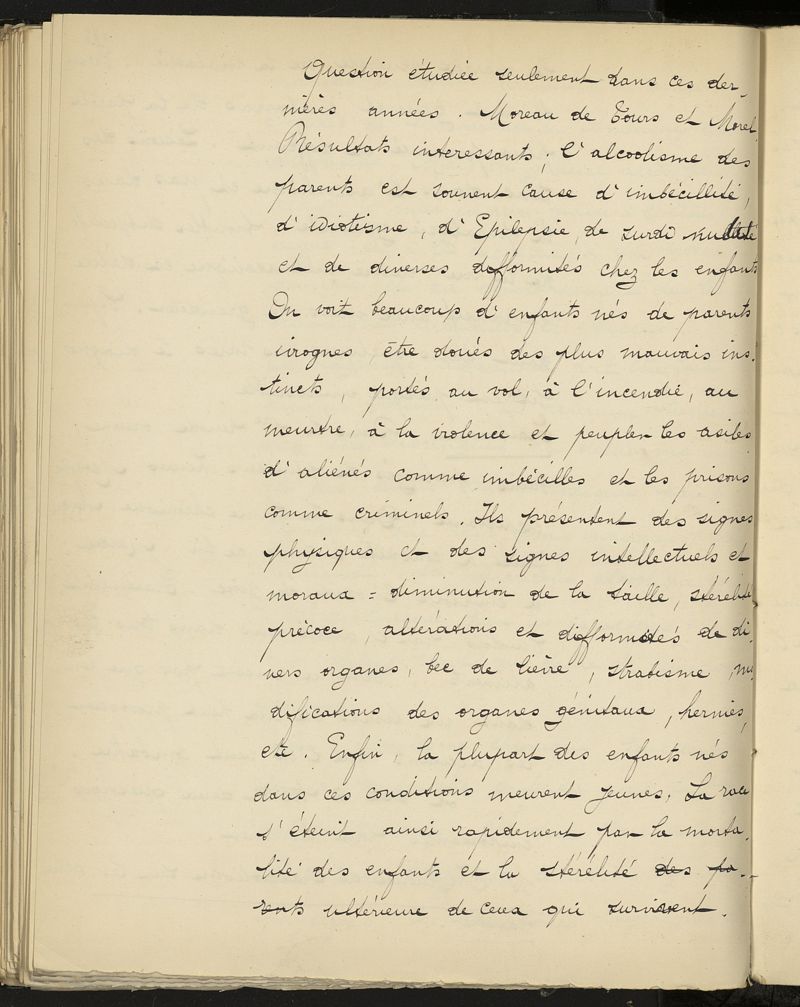 Question étudiée seulement dans ces der-
nières années. Moreau de Tours et Morel.
Résultats interessants; l'alcoolisme des
parents est souvent cause d'imbécillité,
d'idiotisme, d'Epilepsie, de surdi mutité
et de diverses difformités chez les enfants
On voit beaucoup d'enfants nés de parents
ivrognes être doués des plus mauvais ins-
tincts, portés au vol, à l'incendie, au
meurtre, à la violence et peupler les asiles
d'aliénés comme imbécilles et les prisons
comme criminels. Ils présentent des signes
physiques et des signes intellectuels et
moraux = diminution de la taille, stérélité
précoce, altérations et difformités de di-
vers organes, bec de lièvre, strabisme, mo-
difications des organes génitaux, hernies,
etc. Enfin, la plupart des enfants nés
dans ces conditions meurent jeunes. La race
s'éteint ainsi rapidement par la morta-
lité des enfants et la stérélité des pa-
rents ultérieure de ceux qui survivent.